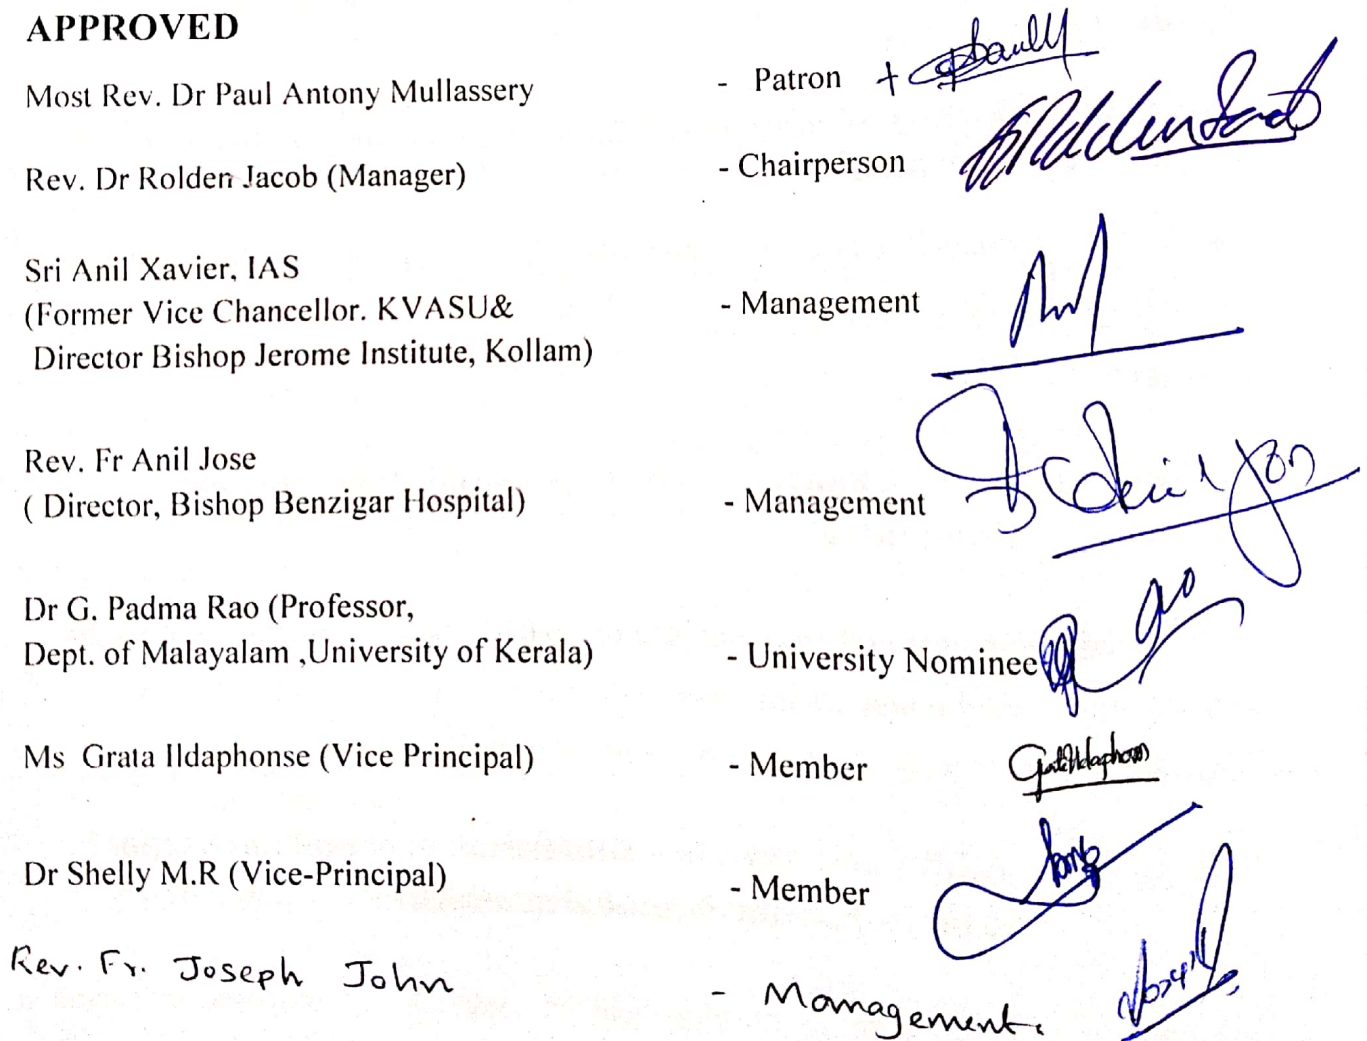 APPROVED
Most Rev. Dr Paul Antony Mullassery - Patron
Rev. Dr Rolden Jacob (Manager) - Chairperson
Sri Anil Xavier, IAS
(Former Vice Chancellor. KVASU& - Management
Director Bishop Jerome Institute, Kollam)
Rev. Fr Anil Jose
( Director, Bishop Benzigar Hospital) - Management
Dr G. Padma Rao (Professor,
Dept. of Malayalam ,University of Kerala) - University Nominee
Ms Grata Ildaphonse (Vice Principal) - Member
Dr Shelly M.R (Vice-Principal) - Member
Rev. Fr. Joseph John - Management.